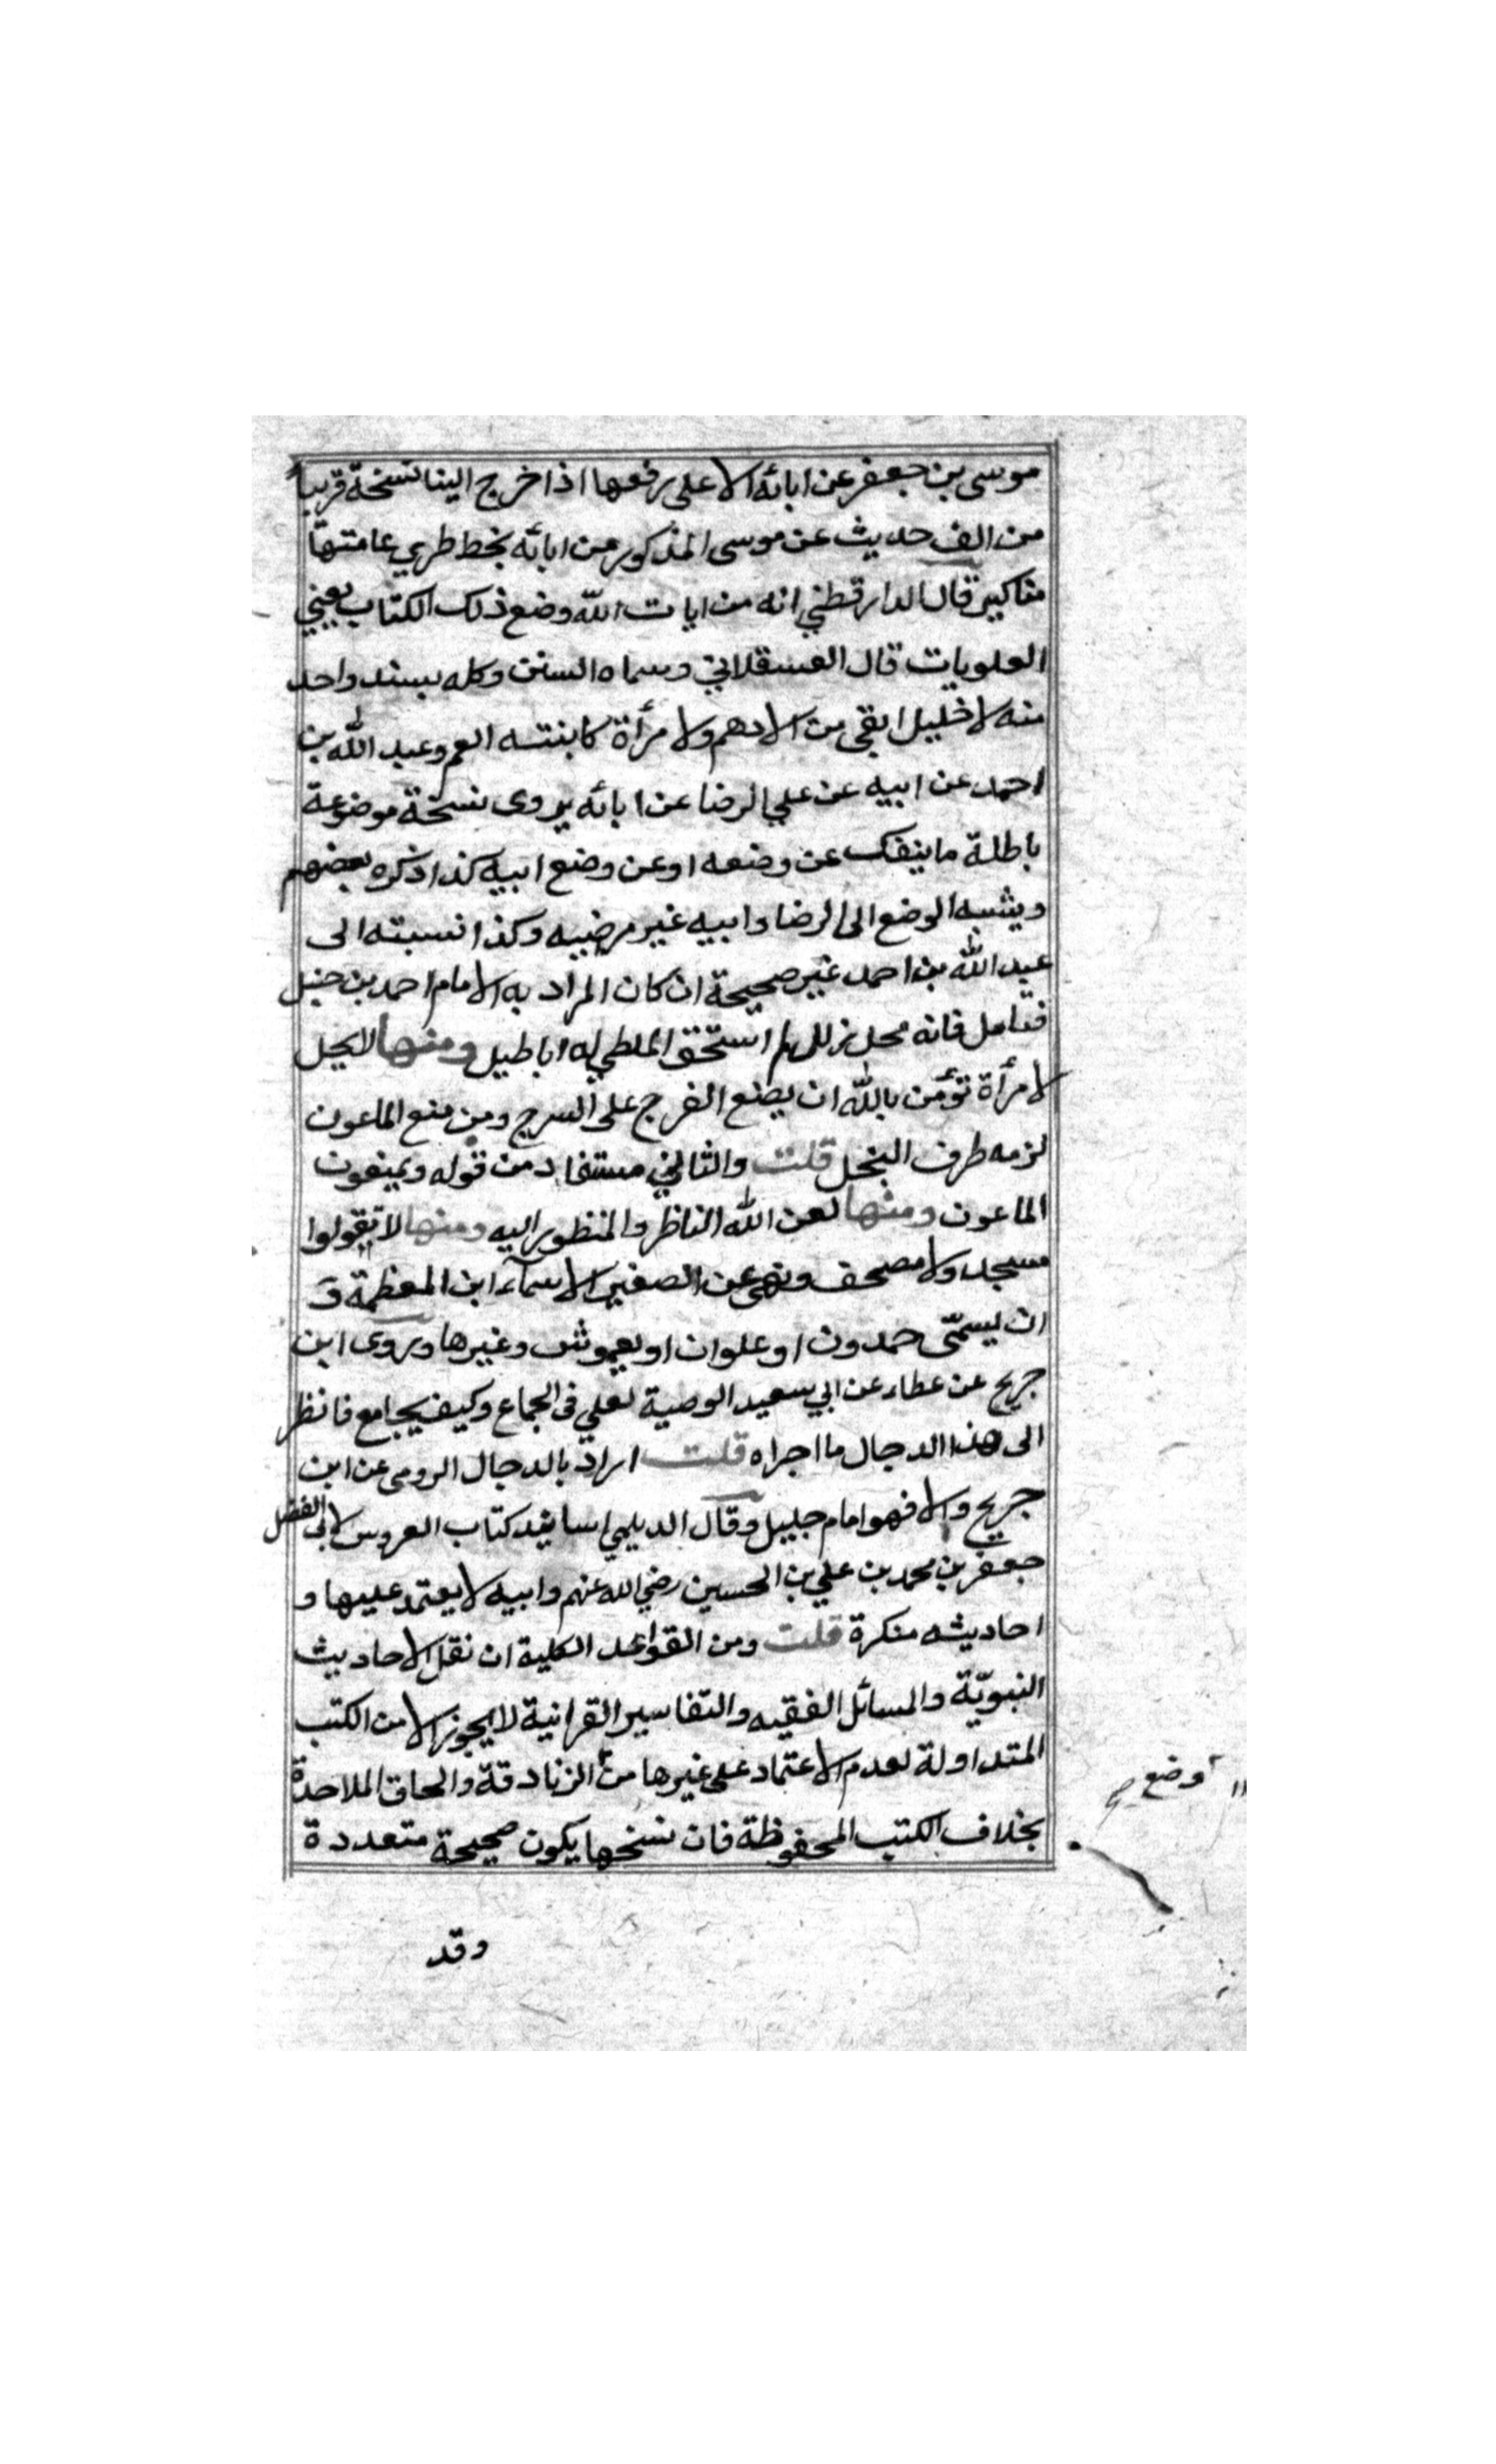 موسى بن جعفر عن ابائه الاعلى رفعها اذا خرج الينا نسخة قريبا
من الف حديث عن موسى المذكور من ابائه بخط طري عامتها
مناكير قال الدارقطني انه من ايات الله وضع ذلك الكتاب يعني
العلويات قال العسقلاني وسماه السنن وكله بسند واحد
منه لا خليل ابقى من الادهم ولا مرأة كابنته العم وعبد الله بن
احمد عن ابيه عن علي الرضا عن ابائه يروى نسخة موضوعة
باطلة ما ينفك عن وضعه او عن وضع ابيه كذا ذكره بعضهم
ويشبه الوضع الى الرضا وابيه غير مرضيه وكذا نسبته الى
عبد الله بن احمد غير صحيحة ان كان المراد به الامام احمد بن حنبل
فتامل فانه محل زلل استحق الملطي له اباطيل ومنها لا يحل
لامرأة تؤمن بالله ان يضع الفرج على السرج ومن منع الماعون
لزمه طرف البخل قلت والثاني مستفاد من قوله ويمنعون
الماعون ومنها لعن الله الناظر والمنظور اليه ومنها لا تقولوا
مسجد ولا مصحف ونهى عن الصغير الاسماء ابن المعظمة و
ان يسمّى حمدون او علوان او يعموش وغيرها وروى ابن
جريج عن عطاء عن ابي سعيد الوصية لعلي في الجماع وكيف يجامع فانظر
الى هذا الدجال ما اجراه قلت اراد بالدجال الرومى عن ابن
جريج والا فهو امام جليل وقال الديلمي اسانيد كتاب العروس لابى الفضل
جعفر بن محمد بن علي بن الحسين رضي الله عنهم وابيه لا يعتمد عليها و
احاديثه منكرة قلت ومن القواعد الكلية ان نقل الاحاديث
النبويّة والمسائل الفقيه والتفاسير القرانية لا يجوز الا من الكتب
المتداولة لعدم الاعتماد على غيرها من الزنادقة والحاق الملاحدة
اوضع صح
بخلاف الكتب المحفوظة فان نسخها يكون صحيحة متعددة
وقد